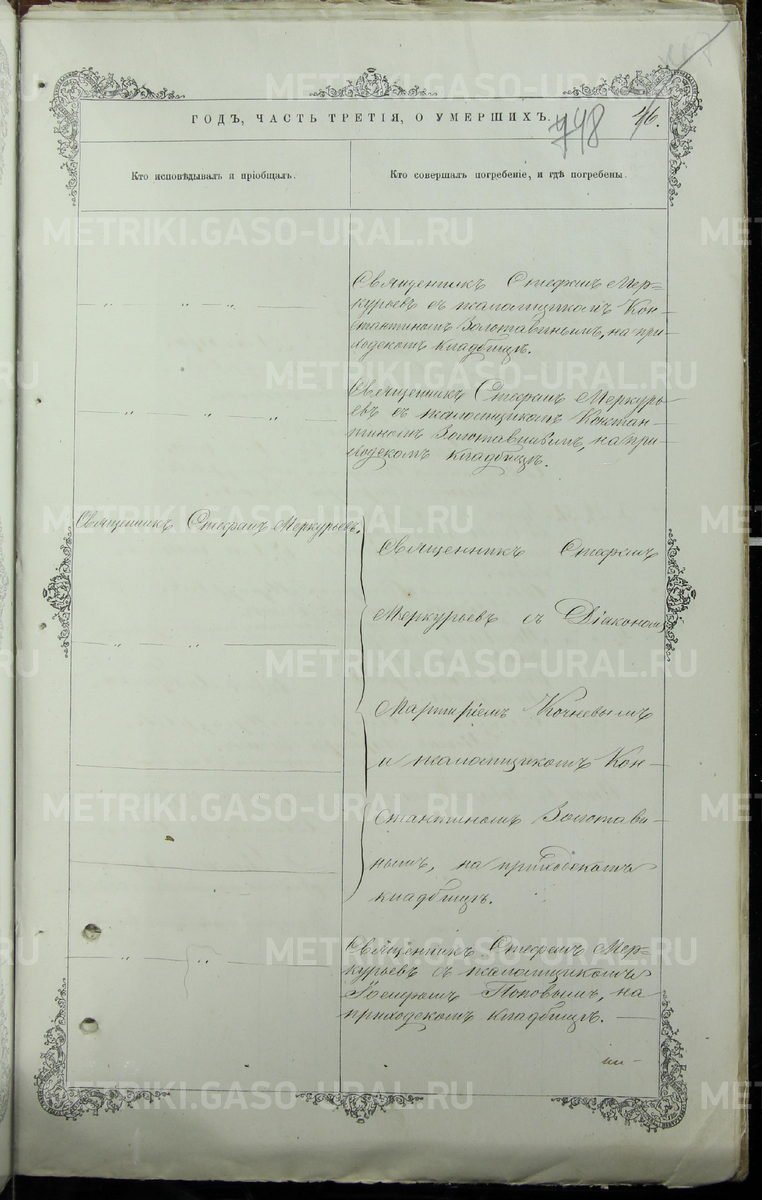 ГОДЪ, ЧАСТЬ ТРЕТІЯ, О УМЕРШИХЪ.
748
Кто исповѣдывалъ и пріобщалъ.
Кто совершалъ погребеніе, и гдѣ погребены.
Священникъ Стефанъ Мер=
курьевъ съ псаломщикомъ Кон-
стантиномъ Золотавинымъ, на при-
ходскомъ кладбищѣ.
Священникъ Стефанъ Меркурь-
евъ съ псаломщикомъ Констан-
тиномъ Золотавинымъ, на при-
ходскомъ кладбищѣ.
Священникъ Стефанъ Меркурьевъ.
Священникъ Стефанъ
Меркурьевъ съ Діакономъ
Мартиріемъ Кочневымъ
и псаломщикомъ Кон-
стантиномъ Золотави-
нымъ, на приходскомъ
кладбищѣ.
Священникъ Стефанъ Мер=
курьевъ съ псаломщикомъ
Поповымъ, на
приходскомъ кладбищѣ.
METRIKI.GASO-URAL.RU